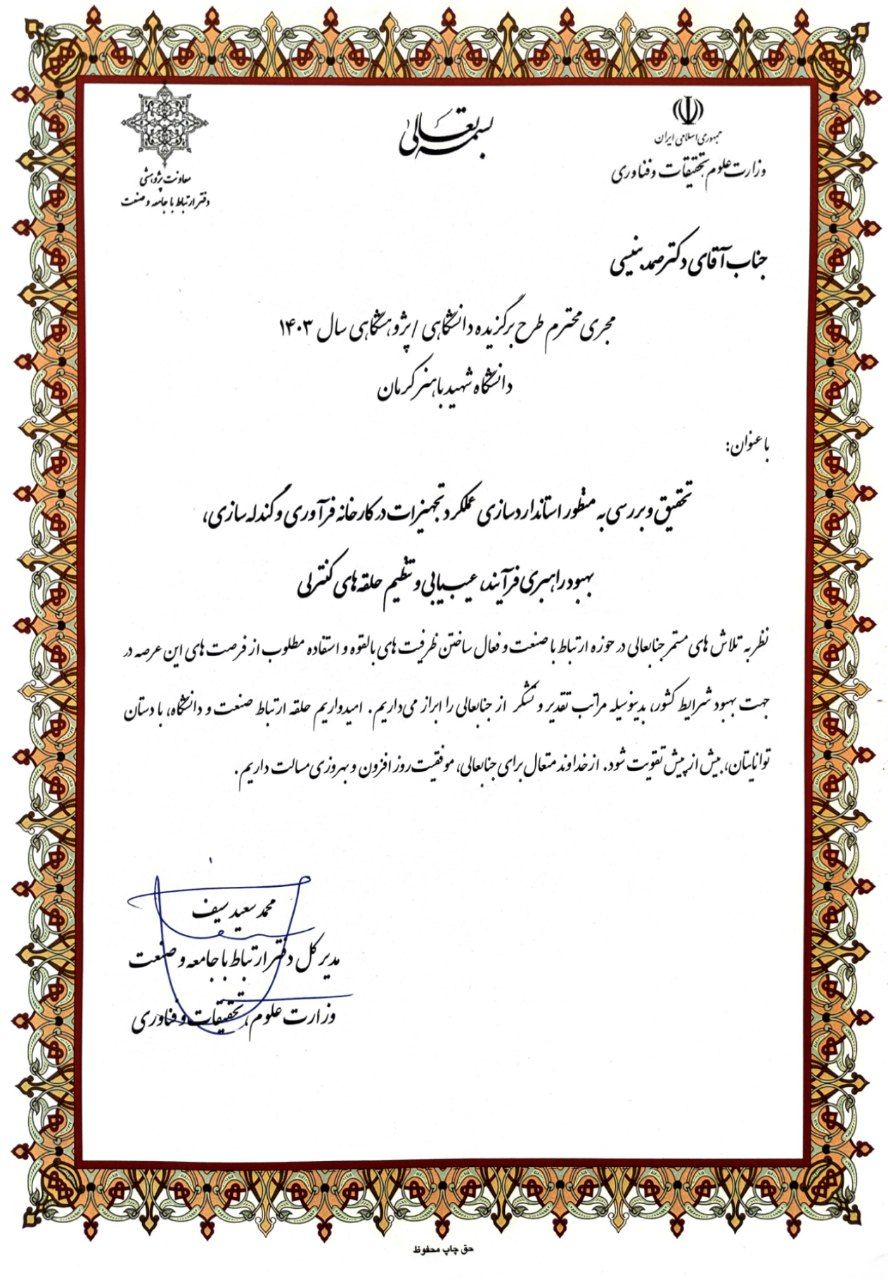 بسمه تعالی
جمهوری اسلامی ایران
وزارت علوم، تحقیقات و فناوری
معاونت پژوهشی
دفتر ارتباط با جامعه و صنعت
جناب آقای دکتر صمد بنیسی
مجری محترم طرح برگزیده دانشگاهی / پژوهشگاهی سال ۱۴۰۳
دانشگاه شهید باهنر کرمان
با عنوان:
تحقیق و بررسی به منظور استانداردسازی عملکرد تجهیزات در کارخانه فرآوری و گندله سازی،
بهبود راهبری فرآیند، عیب‌یابی و تنظیم حلقه های کنترلی
نظر به تلاش های مستمر جنابعالی در حوزه ارتباط با صنعت و فعال ساختن ظرفیت های بالقوه و استفاده مطلوب از فرصت های این عرصه در
جهت بهبود شرایط کشور، بدینوسیله مراتب تقدیر و تشکر از جنابعالی را ابراز می‌داریم. امیدواریم حلقه ارتباط صنعت و دانشگاه، با دستان
توانایتان، بیش از پیش تقویت شود. از خداوند متعال برای جنابعالی، موفقیت روز افزون و بهروزی مسالت داریم.
محمد سعید سیف
مدیر کل دفتر ارتباط با جامعه و صنعت
وزارت علوم، تحقیقات و فناوری
حق چاپ محفوظ